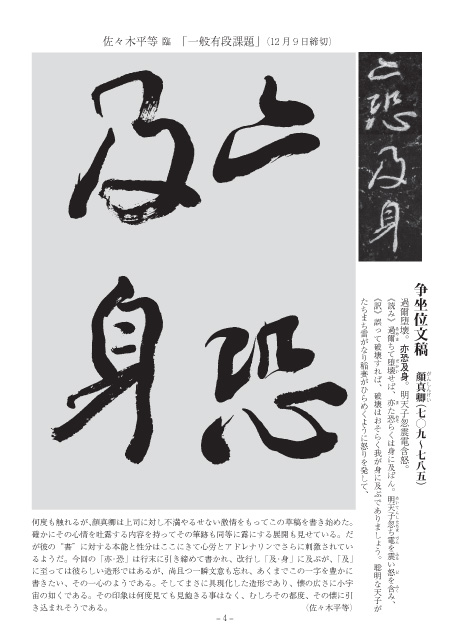 佐々木平等 臨 「一般有段課題」(12月9日締切)
亦恐
及身
亦恐及身
争坐位文稿 顔真卿(七〇九〜七八五)
過爾堕壊。亦恐及身。明天子忽震電含怒。
《読み》過爾ちて堕壊せば、亦た恐らくは身に及ばん。明天子忽ち電を震い怒を含み、
《訳》誤って破壊すれば、破壊はおそらく我が身に及ぶでありましょう。聡明な天子が
たちまち雷がなり稲妻がひらめくように怒りを発して、
何度も触れるが、顔真卿は上司に対し不満やるせない激情をもってこの草稿を書き始めた。
確かにその心情を吐露する内容を持ってその筆跡も同等に露にする展開も見せている。だ
が彼の“書”に対する本能と性分はここにきて心労とアドレナリンでさらに刺激されてい
るようだ。今回の「亦・恐」は行末に引き締めて書かれ、改行し「及・身」に及ぶが、「及」
に至っては彼らしい造形ではあるが、尚且つ一瞬文意も忘れ、あくまでこの一字を豊かに
書きたい、その一心のようである。そしてまさに具現化した造形であり、懐の広さに小宇
宙の如くである。その印象は何度見ても見飽きる事はなく、むしろその都度、その懐に引
き込まれそうである。 (佐々木平等)
− 4 −